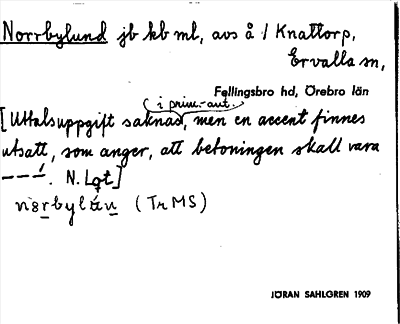 Norrbylund jb kb ml, avs å / Knattorp,
Ervalla sn,
Fellingsbro hd, Örebro län
i prim.-aut.
[Uttalsuppgift saknas, men en accent finnes
utsatt, som anger, att betoningen skall vara
---́. N. Lgt]
(Tr MS)
JÖRAN SAHLGREN 1909